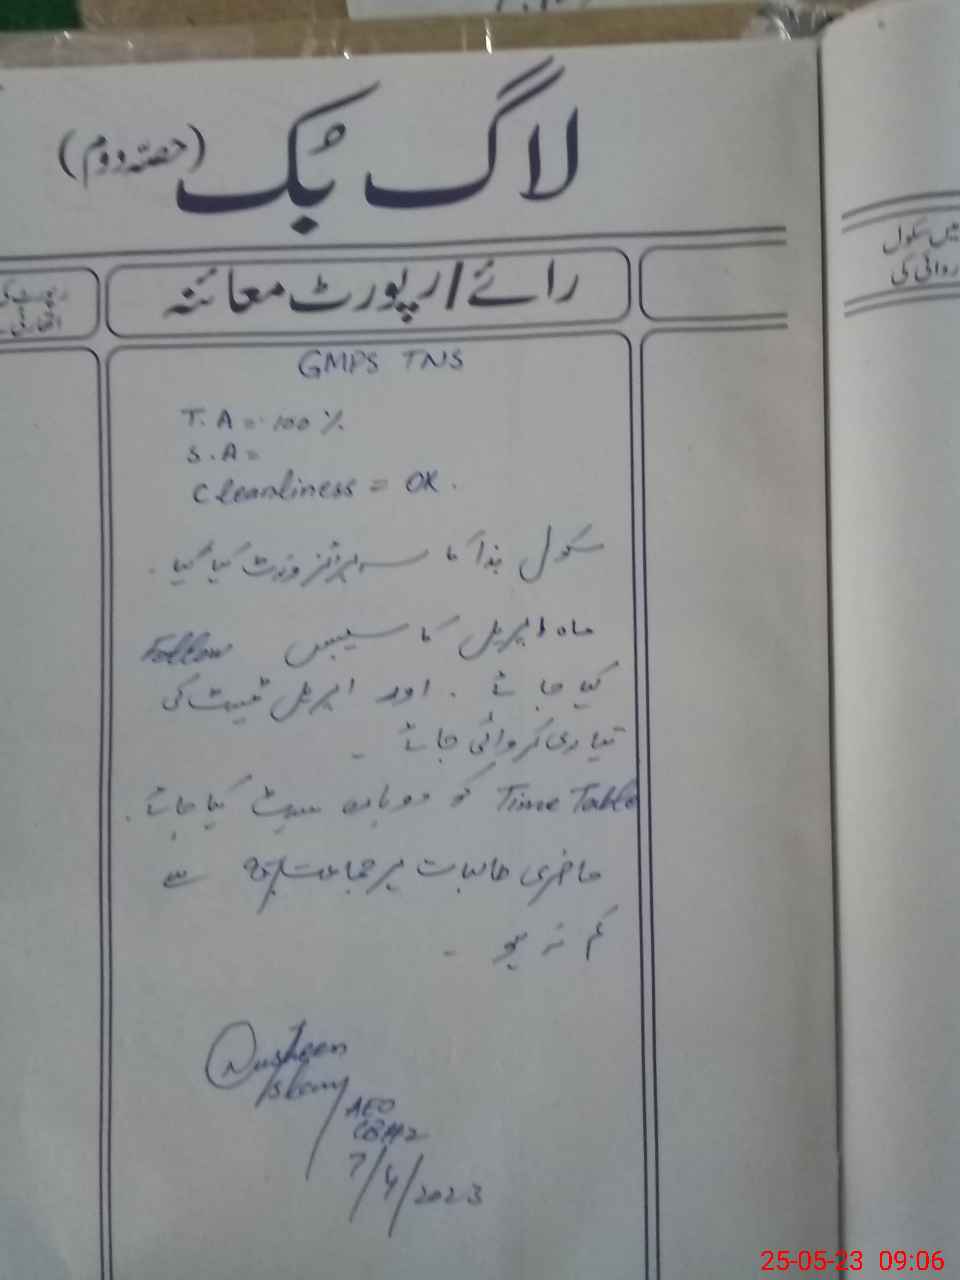 لاگ بُک (حصّہ دوم)
رائے/رپورٹ معائنہ
رپورٹ کی
میں سکول
روائی کی
GMPS TNS
T.A = 100 %
S.A =
Cleanliness = OK.
سکول ہذا کا سرپرائز وزٹ کیا گیا۔
ماہ اپریل کا سلیبس Follow
کیا جائے ۔ اور اپریل ٹیسٹ کی
تیاری کروائی جائے ۔
Time Table کو دوبارہ سیٹ کیا جائے۔
حاضری طالبات ہر جماعت سے
کم نہ ہو ۔
Nusheen
AEO
7/4/2023
25-05-23 09:06